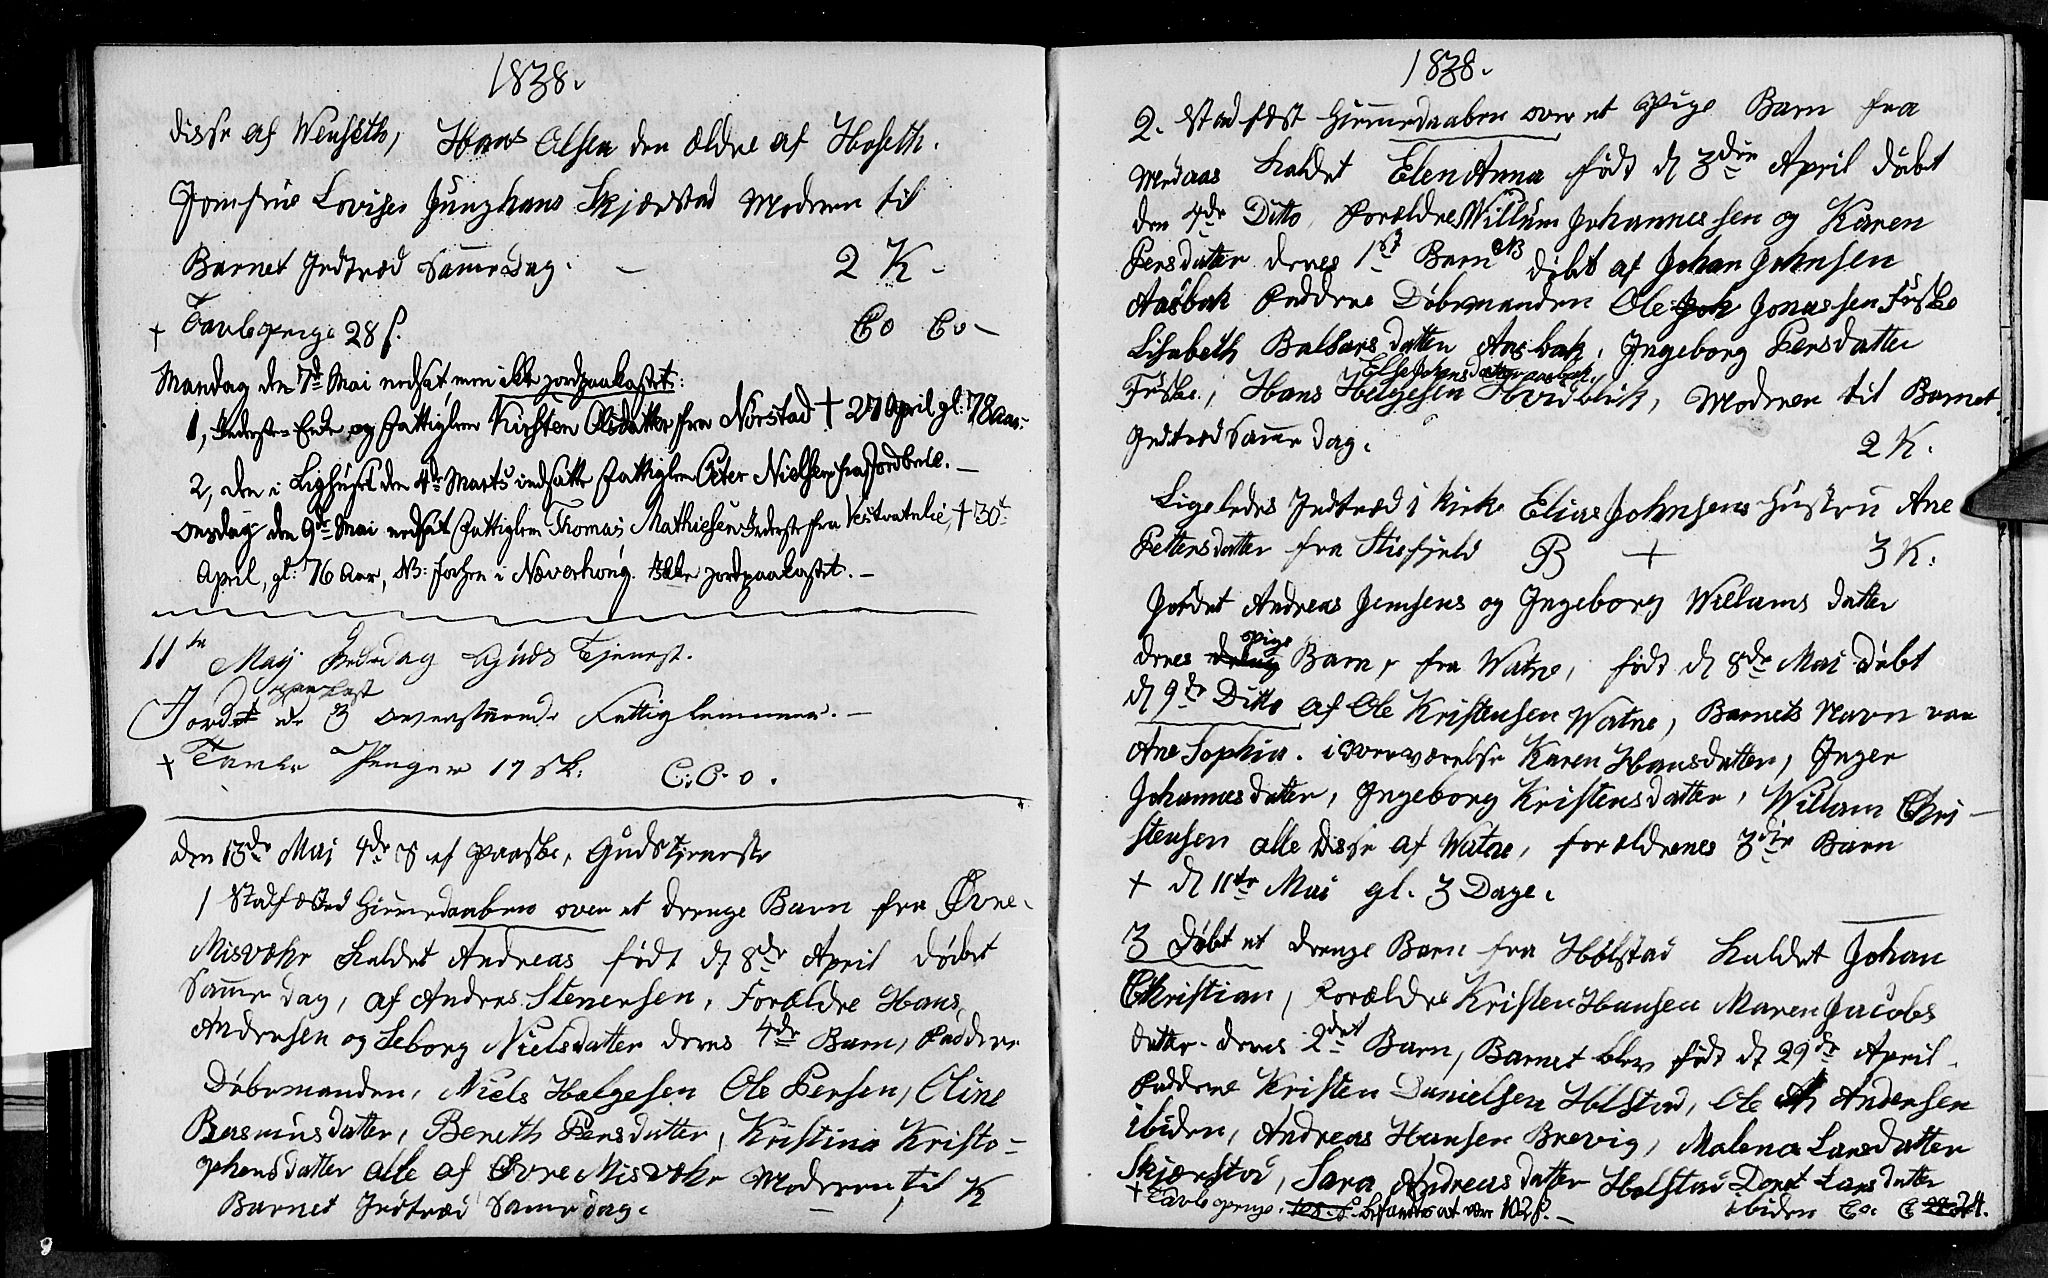 1838.
disse af Wenseth, Hans Olsen den ældre af Hoseth.
Jomfrue Lovise Junghans Skjærstad Moderen til
Barnet Indtræd samme Dag. – 2 K –
+ Tavlepenge 28 s.
Mandag den 7d Mai nedsat men ikke jordpaakastet:
1, Inderste-Enke og Fattiglem Kirsten Olsdatter fra Nørstad + 27 April gl: 78 Aar.
2, den i Liighuset den 4de Marts indsatte Fattiglem Peter Nielsen fra Jordbroe. –
Onsdag den 9de Mai nedsat Fattiglem Thomas Mathiesen Inderste fra Vestvatnlie, + 30te
April, gl: 76 Aar, NB: Sognen i Næverhoug. Ikke jordpaakastet. –
11te May Bededag Guds Tjenest.
Jordpaakast de 3 ovenstaaende Fattiglemmer. –
+ Tavle Penger 17 sk: C. C. o.
den 13de Mai 4de S ef Paaske, Gudstjeneste
1 Stadfæsted Hiemedaaben over et drenge Barn fra Øvre-
Misvær kaldet Andreas født d 8de April døbet
Samme Dag, af Andres Stenersen, Forældre Hans
Andersen og Seborg Nielsdatter deres 4de Barn, Faddere
Døbemanden, Niels Helgesen Ole Persen, Oline
Rasmusdatter, Bereth Persdatter, Kristina Kristo-
phersdatter alle af Øvre Misvær Moderen til K
Barnet Indtræd Samme dag. –
1838.
2. Stadfæst Hiemedaaben over et Pige Barn fra
Medaas kaldet Elen Anna født d 3die April døbt
den 4de Ditto, Forældre Willum Johannessen og Karen
Persdatter deres 1st Barn NB døbt af Johan Johnsen
Aasbak Faddere Døbemanden Ole Joh Jonassen Fuske
Lisabeth Balsarsdatter Aasbak, Ingeborg Persdatter
Else Johnsdatter Aasbak,
Fuske, Hans Helgesen Hvidblik, Moderen til Barnet
Indtræd Samme dag. 2 K.
Ligeledes Indtræd i Kirke Elias Johnsens Hustru Ane
Pettersdatter fra Stifjeld B + 3 K.
Jordet Andreas Jensens og Ingeborg Willams datter
pige
deres dreng Barn, fra Watne, født d 8de Mai døbt
d 9de Ditto af Ole Kristensen Watne, Barnets Navn var
Ane Sophia. i overværelse Karen Hansdatter, Inger
Johannesdatter, Ingeborg Kristensdatter, Willam Chri-
stensen alle disse af Watne, forældrenes 3die Barn
+ d 11te Mai gl. 3 Dage.
3 Døbt et drenge Barn fra Holstad kaldet Johan
Christian, Forældre Kristen Hansen Maren Jacobs
datter deres 2det Barn, Barnet blev født d 29de April
Faddere Kristen Danielsen Holstad, Ole An Andersen
ibiden, Andreas Hansen Brevig, Malena Larsdatter
Skjærstad, Sara Andreasdatter Holstad Doret Larsdatter
+ Tavlepenge. befandtes at være 102 s. – ibiden Co. C 24.